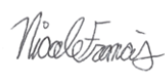 Nicole Francis